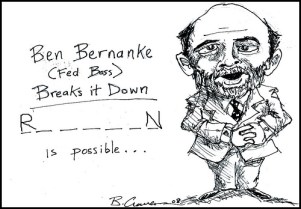 Ben Bernanke
(Fed Boss)
Breaks it Down
R _ _ _ _ _ _ N
is possible...